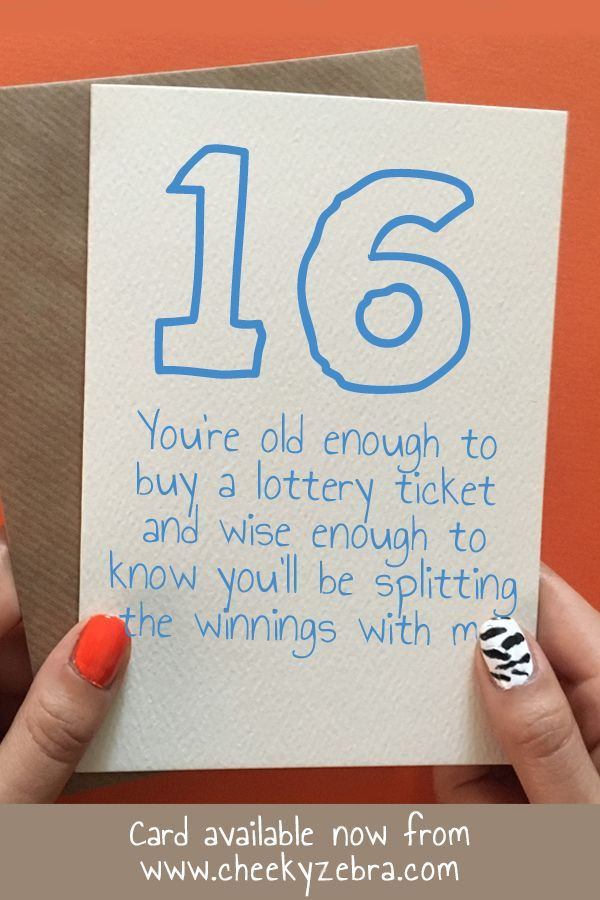 16
You're old enough to
buy a lottery ticket
and wise enough to
know you'll be splitting
the winnings with
Card available now from
www.cheekyzebra.com